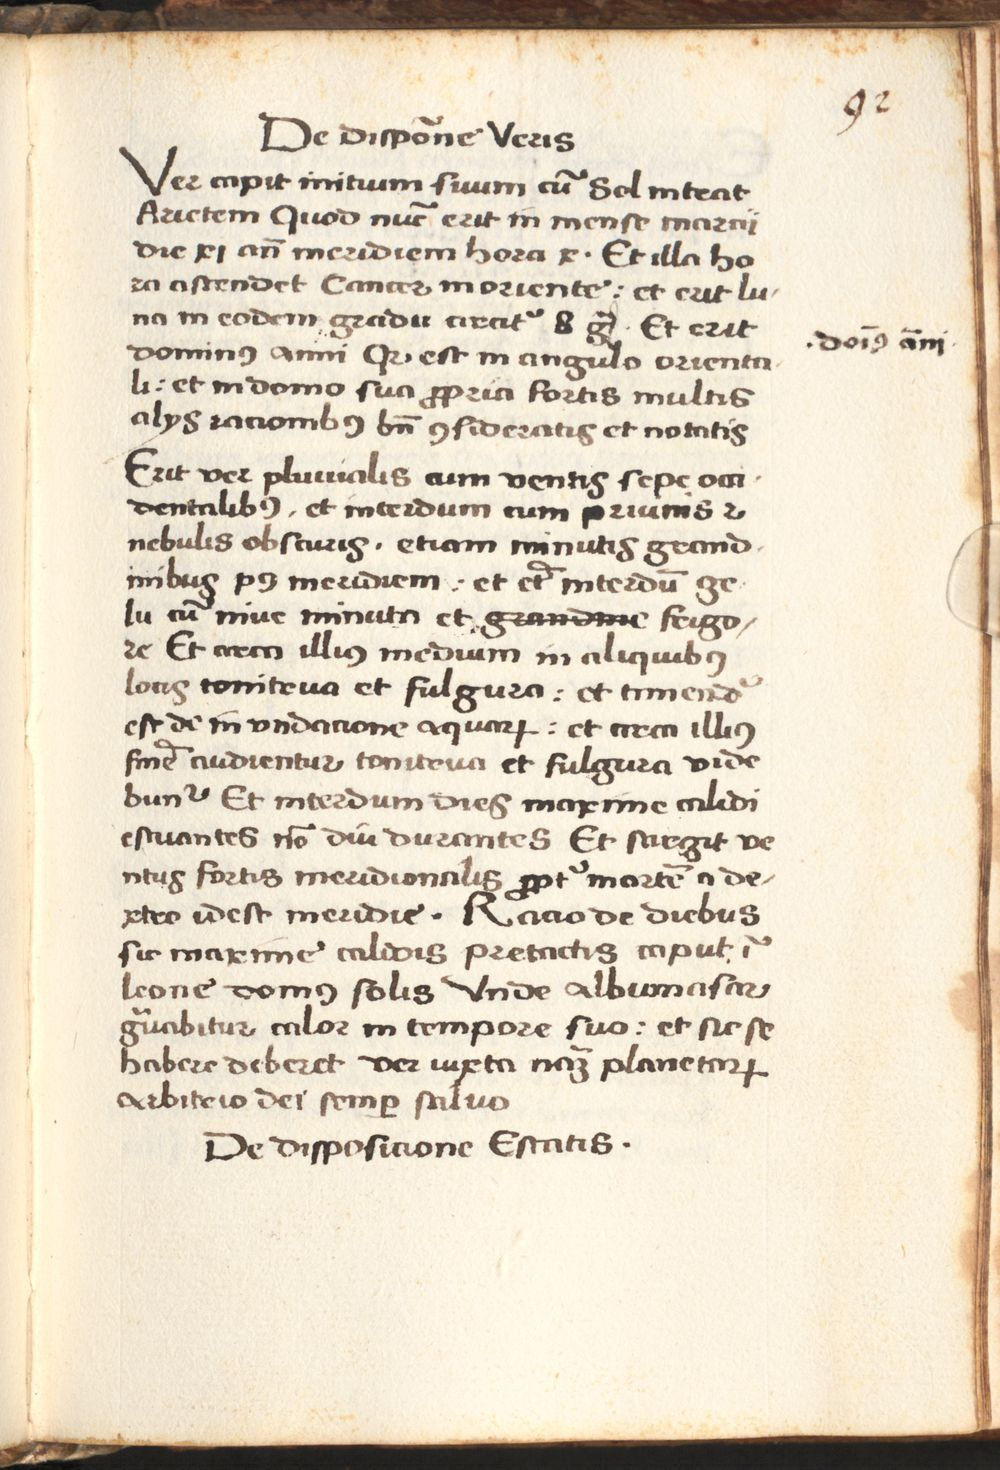 92
De dispoñe Veris
Ver capit initium suum cũ Sol intrat
Arietem Quod nũc erit in mense marcii
die xi añ meridiem hora x. Et illa ho
ra ascendet Cancer in oriente: et erit lu-
na in eodem gradu circit᷒ 8 g̃. Et erit
.doĩꝯ ãni.
dominꝯ anni Qr est in angulo orienta-
li: et in domo sua ꝓpria fortis multis
alys racionibꝯ bñ ꝯsideratis et notatis
Erit ver pluuialis cum ventis sepe occi-
dentalibꝯ, et interdum cum pruinis ⁊
nebulis obscuris. etiam minutis grand-
inibus pꝯ meridiem: et et̃ interdũ ge-
lu cũ niue minuta et grandine frigo-
re Et circa illiꝯ medium in aliquibꝯ
locis tonitrua et fulgura: et timend᷒
est de inundacione aquaꝝ: et circa illiꝯ
finẽ audientur tonitrua et fulgura vide
bunt᷒ Et interdum dies maxime calidi
estuantes nõ diu durantes Et surgit ve
ntus fortis meridionalis ꝓpt᷒ martẽ a de-
xtro idest meridie. Racio de diebus
sic maxime calidis pretactis caput ĩ
leone domꝯ solis Vnde Albumasar
gͣuabitur calor in tempore suo: et sic se
habere deberet ver iuxta naꝫ planetaꝝ
Arbitrio dei semꝑ saluo
De disposicione Estatis.